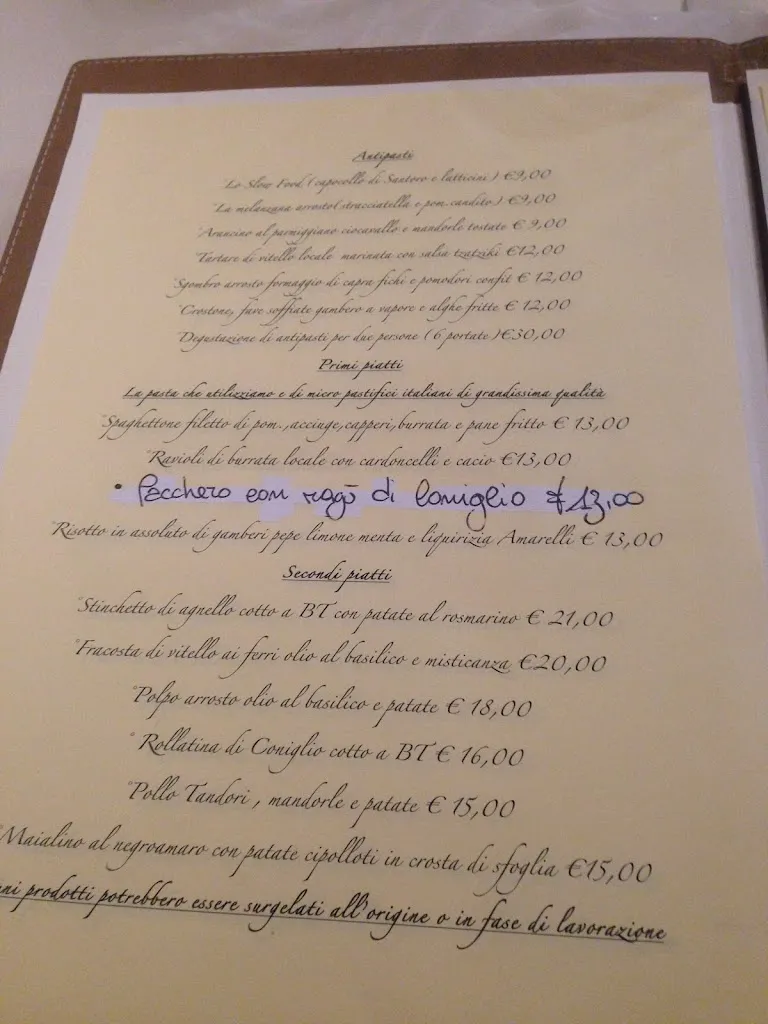 Antipasti
°Lo Slow Food ( capocollo di Santoro e latticini ) €9,00
°La melanzana arrosto( stracciatella e pom.candito.) €9,00
°Arancino al parmiggiano ciocavallo e mandorle tostate € 9,00
°Tartare di vitello locale marinata con salsa tzatziki €12,00
°Sgombro arrosto formaggio di capra fichi e pomodori confit € 12,00
°Crostone, fave soffiate gambero a vapore e alghe fritte € 12,00
°Degustazione di antipasti per due persone ( 6 portate )€30,00
Primi piatti
La pasta che utilizziamo e di micro pastifici italiani di grandissima qualità
°Spaghettone filetto di pom.,acciuge,capperi,burrata e pane fritto € 13,00
°Ravioli di burrata locale con cardoncelli e cacio €13,00
• Pacchero con ragò di Coniglio € 13,00
°Risotto in assoluto di gamberi pepe limone menta e liquirizia Amarelli € 13,00
Secondi piatti
°Stinchetto di agnello cotto a BT con patate al rosmarino € 21,00
°Fracosta di vitello ai ferri olio al basilico e misticanza €20,00
°Polpo arrosto olio al basilico e patate € 18,00
°Rollatina di Coniglio cotto a BT € 16,00
°Pollo Tandori , mandorle e patate € 15,00
°Maialino al negroamaro con patate cipolloti in crosta di sfoglia €15,00
prodotti potrebbero essere surgelati all'origine o in fase di lavorazione